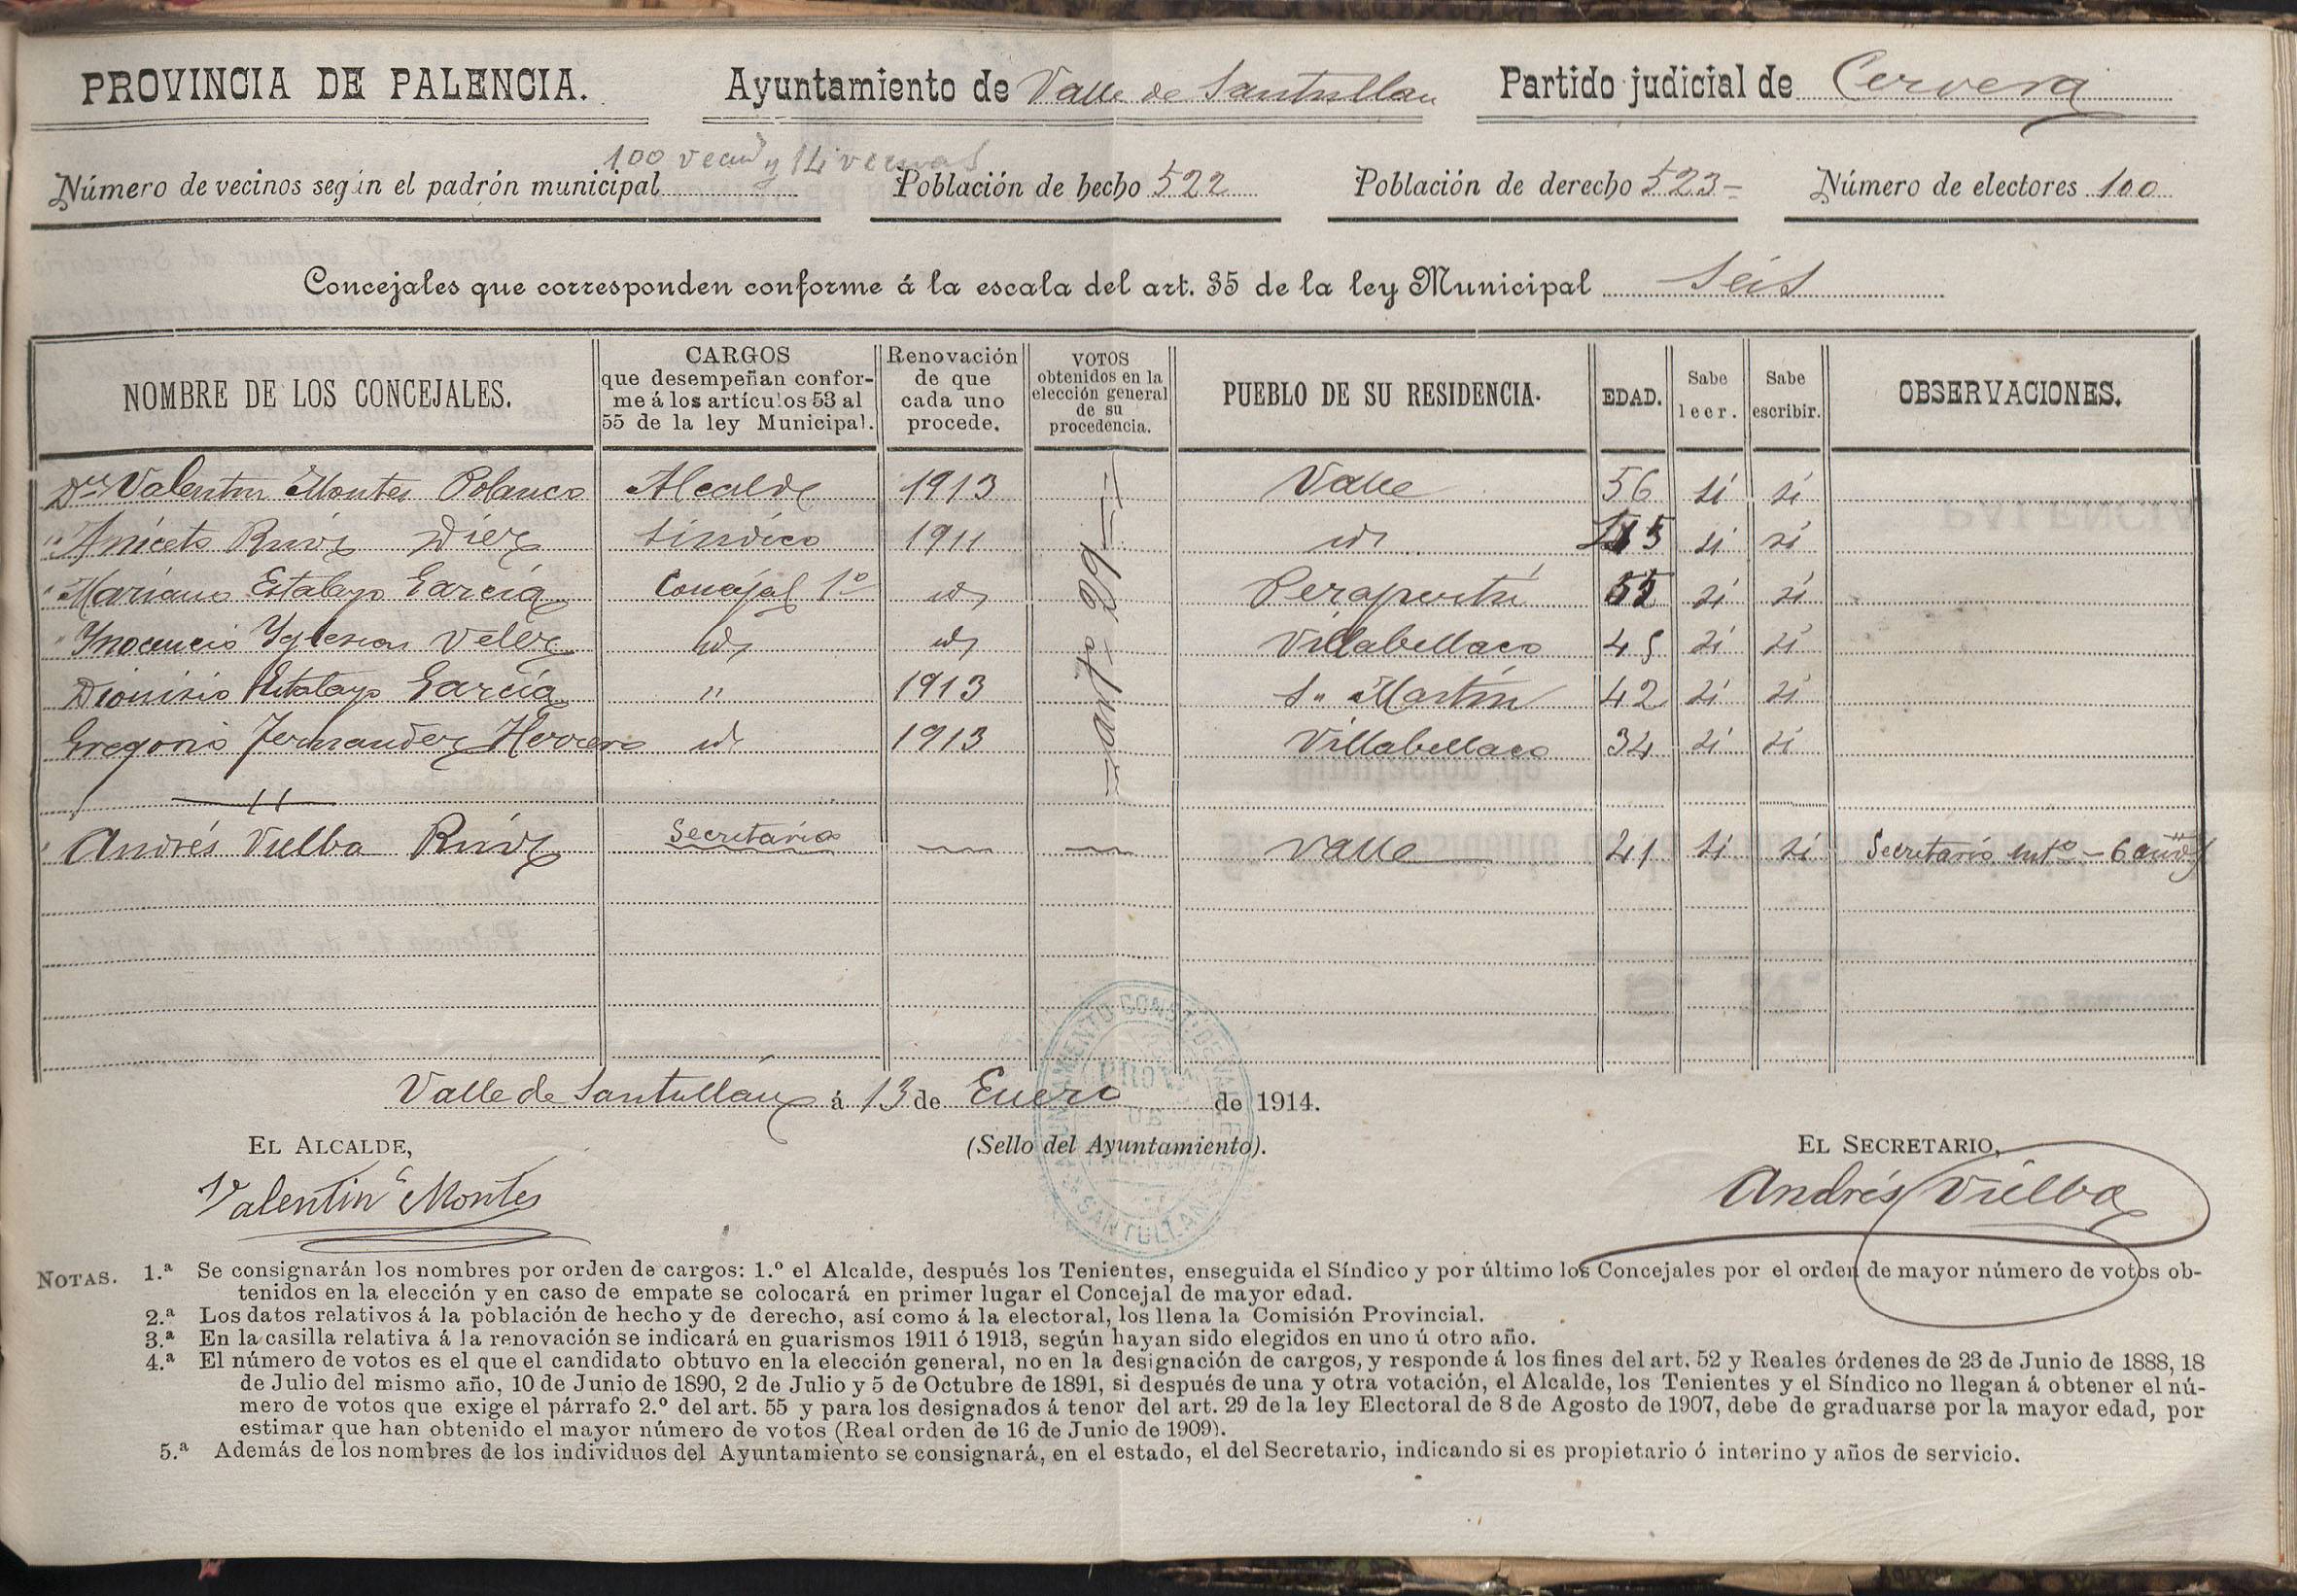 PROVINCIA DE PALENCIA. Ayuntamiento de Valle de Santullan Partido judicial de Cervera
100 y 14
Número de vecinos según el padrón municipal Población de hecho 522 Población de derecho 523- Número de electores 100
Concejales que corresponden conforme á la escala del art. 35 de la ley Municipal Seis
NOMBRE DE LOS CONCEJALES. CARGOS que desempeñan confor- me á los artículos 53 al 55 de la ley Municipal. Renovación de que cada uno procede. VOTOS obtenidos en la elección general de su procedencia. PUEBLO DE SU RESIDENCIA. EDAD. Sabe leer. Sabe escribir. OBSERVACIONES.
Valentin Montes Polanco Alcalde 1913 Valle 56 si si
" Aniceto Ruiz Diez Sindico 1911 id si si
" Mariano Estalayo García Concejal 1º id Perapertú si si
" Ynocencio Yglesias Velez id id Villabellaco 45 si si
Dionisio Estalayo García " 1913 Sn Martin 42 si si
Gregorio Fernandez Herrero id 1913 Villabellaco 34 si si
— artº 29 —
Andrés Vielba Ruiz Secretario Valle 41 si si Secretario intº - 6 años
Valle de Santullán á 13 de Enero de 1914.
EL ALCALDE, (Sello del Ayuntamiento). EL SECRETARIO,
Valentin Montes Andrés Vielba
NOTAS. 1.ª Se consignarán los nombres por orden de cargos: 1.º el Alcalde, después los Tenientes, enseguida el Síndico y por último los Concejales por el orden de mayor número de votos ob-
tenidos en la elección y en caso de empate se colocará en primer lugar el Concejal de mayor edad.
2.ª Los datos relativos á la población de hecho y de derecho, así como á la electoral, los llena la Comisión Provincial.
3.ª En la casilla relativa á la renovación se indicará en guarismos 1911 ó 1913, según hayan sido elegidos en uno ú otro año.
4.ª El número de votos es el que el candidato obtuvo en la elección general, no en la designación de cargos, y responde á los fines del art. 52 y Reales órdenes de 23 de Junio de 1888, 18
de Julio del mismo año, 10 de Junio de 1890, 2 de Julio y 5 de Octubre de 1891, si después de una y otra votación, el Alcalde, los Tenientes y el Síndico no llegan á obtener el nú-
mero de votos que exige el párrafo 2.º del art. 55 y para los designados á tenor del art. 29 de la ley Electoral de 8 de Agosto de 1907, debe de graduarse por la mayor edad, por
estimar que han obtenido el mayor número de votos (Real orden de 16 de Junio de 1909).
5.ª Además de los nombres de los individuos del Ayuntamiento se consignará, en el estado, el del Secretario, indicando si es propietario ó interino y años de servicio.